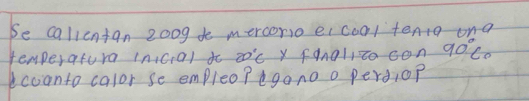 Se calientan 200g de mercorio el cual tenia una
temperatura inicial de 20°C y finalizo con 90°C.
¿cuanto calor se empleo? ¿gano o perdio?